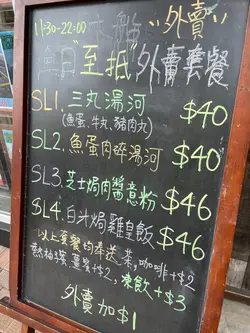 11:30-22:00
外賣
全日"至抵"外賣套餐
SL1. 三丸湯河 $40
(魚蛋、牛丸、豬肉丸)
SL2. 魚蛋肉碎湯河 $40
SL3. 芝士焗肉醬意粉 $46
SL4. 白汁焗雞皇飯 $46
以上套餐均奉送 茶,咖啡+$2
熱柚子蜜 薑+$2, 凍飲+$3
外賣加$1